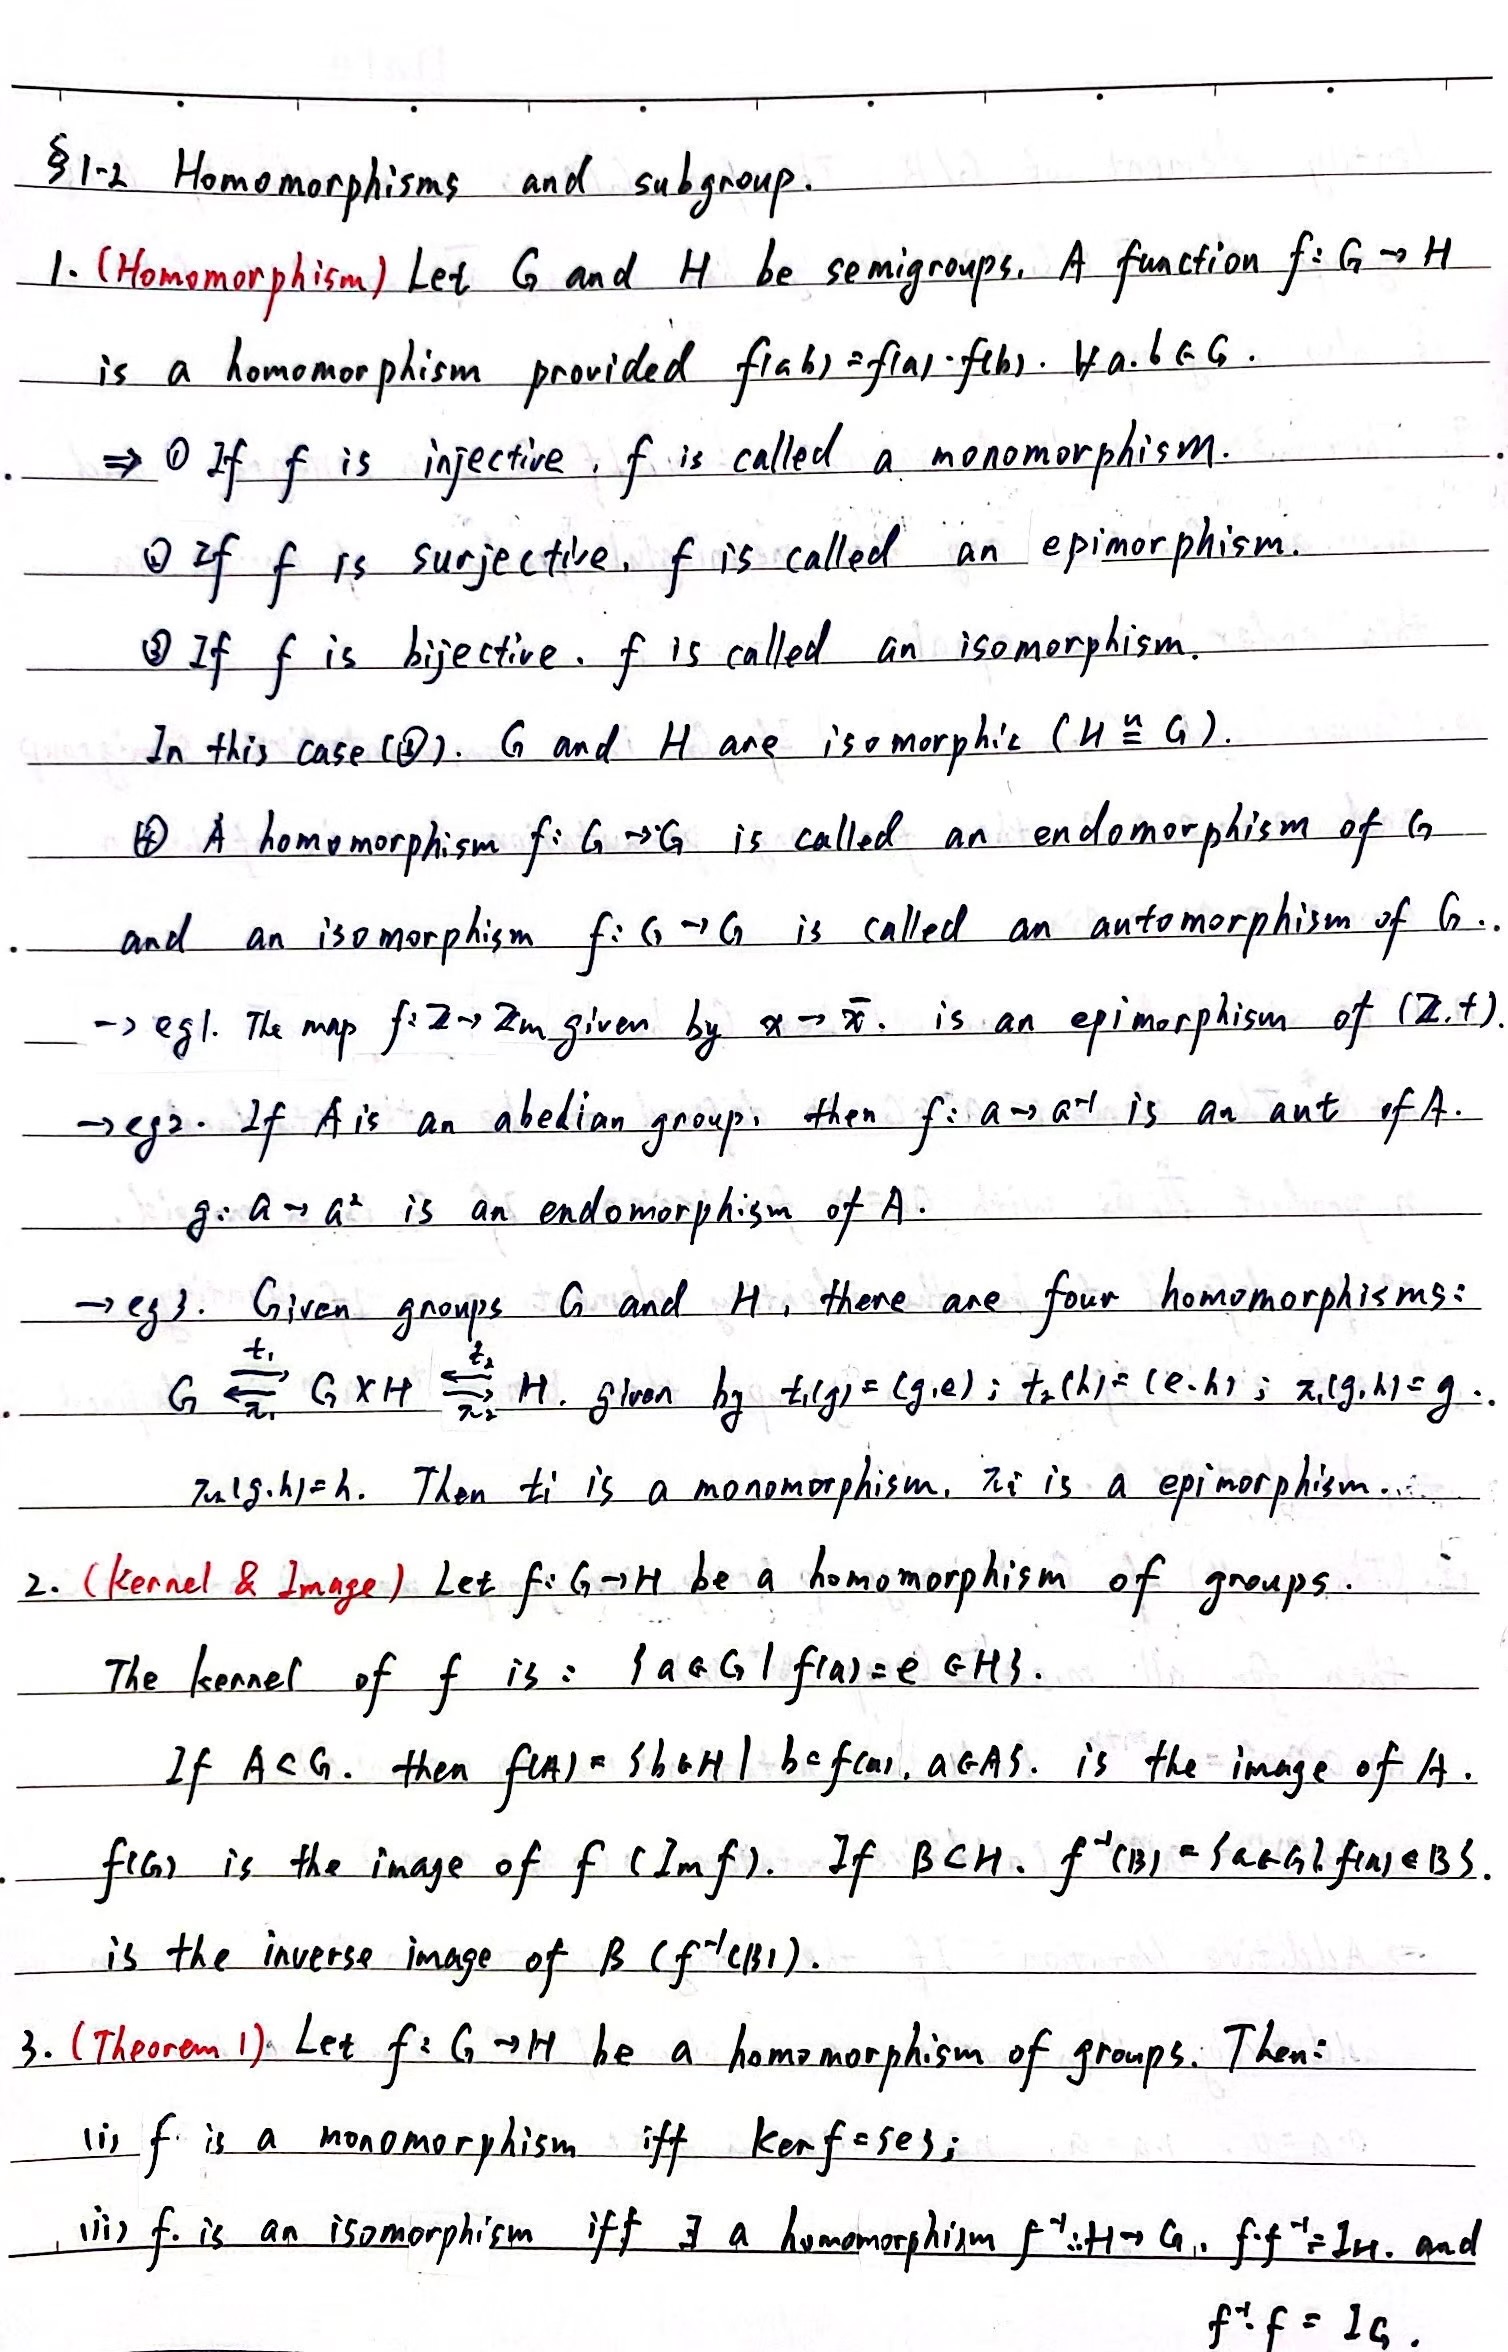 §1-2 Homomorphisms and subgroup.
1. (Homomorphism) Let G and H be semigroups. A function f: G → H
is a homomorphism provided f(ab) = f(a)·f(b). ∀a.b∈G.
⇒ ① If f is injective, f is called a monomorphism.
② If f is surjective, f is called an epimorphism.
③ If f is bijective. f is called an isomorphism.
In this case (③). G and H are isomorphic (H ≅ G).
④ A homomorphism f: G → G is called an endomorphism of G
and an isomorphism f: G → G is called an automorphism of G.
→ eg1. The map f: Z → Zm given by x → x̄. is an epimorphism of (Z.+).
→ eg2. If A is an abedian group, then f: a → a⁻¹ is an aut of A.
g: a → a² is an endomorphism of A.
→ eg3. Given groups G and H, there are four homomorphisms:
t₁ t₂
G ⇄ G×H ⇄ H. given by t₁(g) = (g,e); t₂(h) = (e.h); π₁(g.h) = g.
π₁ π₂
π₂(g.h) = h. Then ti is a monomorphism, πi is a epimorphism.
2. (Kernel & Image) Let f: G → H be a homomorphism of groups.
The kernel of f is: {a∈G | f(a) = e ∈H}.
If A⊂G. then f(A) = {b∈H | b = f(a), a∈A}. is the image of A.
f(G) is the image of f (Im f). If B⊂H. f⁻¹(B) = {a∈G | f(a)∈B}.
is the inverse image of B (f⁻¹(B)).
3. (Theorem 1) Let f: G → H be a homomorphism of groups. Then:
(i) f is a monomorphism iff Ker f = {e};
(ii) f is an isomorphism iff ∃ a homomorphism f⁻¹: H → G, f·f⁻¹ = 1H. and
f⁻¹·f = 1G.